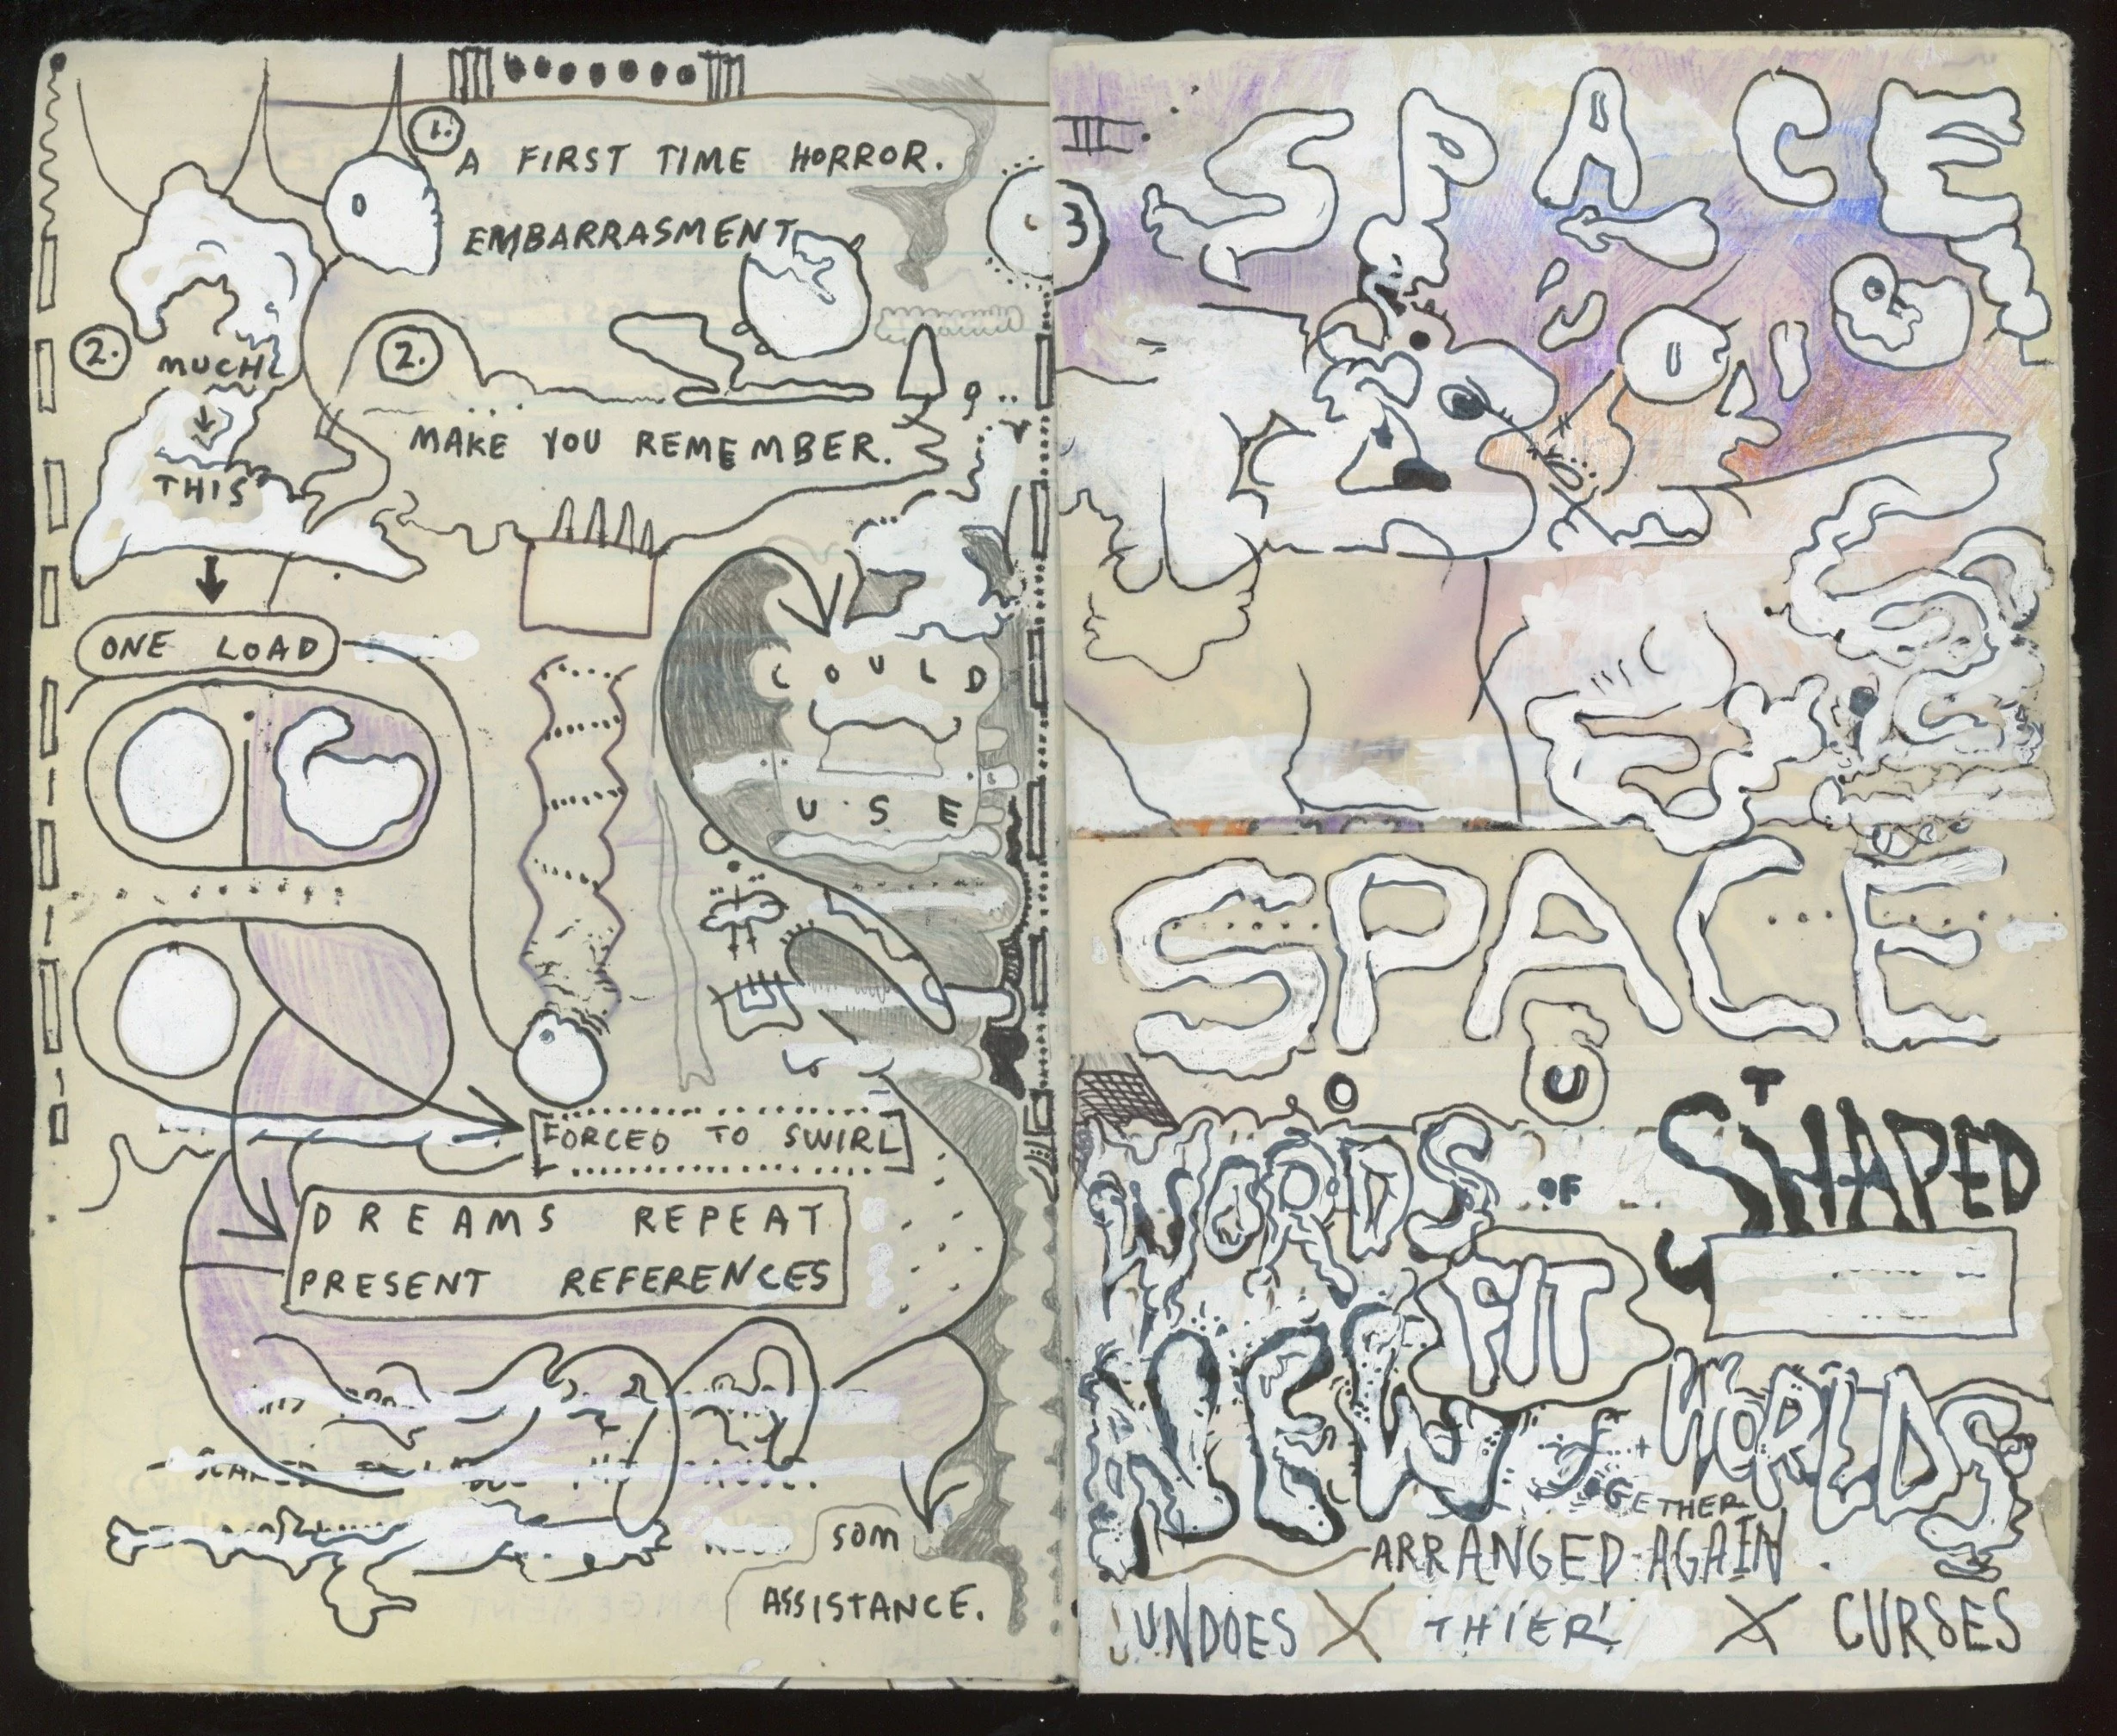 1.
A FIRST TIME HORROR.
EMBARRASMENT
2.
MUCH
THIS
2.
MAKE YOU REMEMBER.
ONE LOAD
COULD
USE
FORCED TO SWIRL
DREAMS REPEAT
PRESENT REFERENCES
SOM
ASSISTANCE.
3
SPACE
SPACE
WORDS OF SHAPED
FIT
NEW WORLDS
GETHER
ARRANGED AGAIN
UNDOES X THIER X CURSES